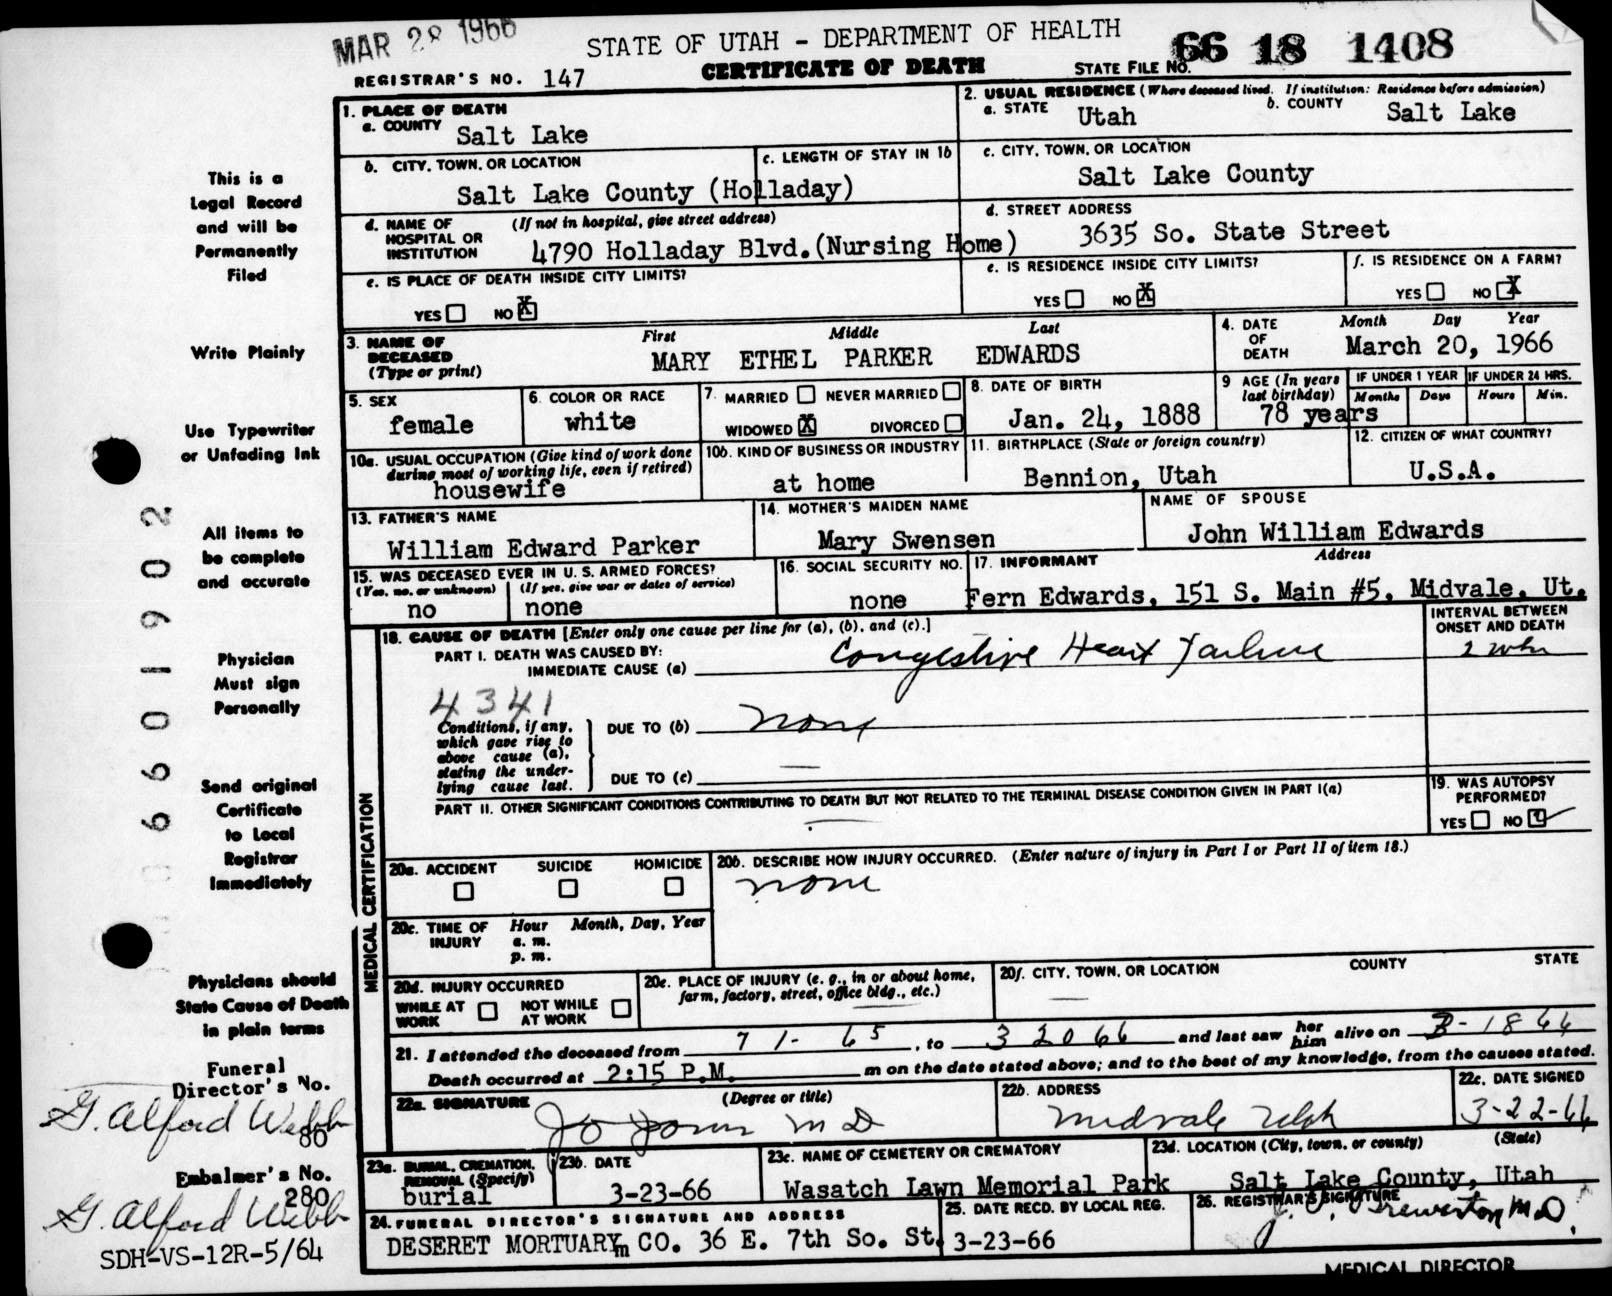 MAR 28 1966
STATE OF UTAH - DEPARTMENT OF HEALTH
66 18 1408
CERTIFICATE OF DEATH
STATE FILE NO.
REGISTRAR'S NO. 147
1. PLACE OF DEATH
a. COUNTY Salt Lake
2. USUAL RESIDENCE (Where deceased lived. If institution: Residence before admission)
a. STATE Utah b. COUNTY Salt Lake
b. CITY, TOWN, OR LOCATION Salt Lake County (Holladay)
c. LENGTH OF STAY IN 1b
c. CITY, TOWN, OR LOCATION
Salt Lake County
d. NAME OF HOSPITAL OR INSTITUTION (If not in hospital, give street address)
4790 Holladay Blvd. (Nursing Home)
d. STREET ADDRESS
3635 So. State Street
e. IS PLACE OF DEATH INSIDE CITY LIMITS?
YES NO X
e. IS RESIDENCE INSIDE CITY LIMITS?
YES NO X
f. IS RESIDENCE ON A FARM?
YES NO X
3. NAME OF DECEASED (Type or print)
First Middle Last
MARY ETHEL PARKER EDWARDS
4. DATE OF DEATH
Month Day Year
March 20, 1966
5. SEX
female
6. COLOR OR RACE
white
7. MARRIED NEVER MARRIED
WIDOWED X DIVORCED
8. DATE OF BIRTH
Jan. 24, 1888
9 AGE (In years last birthday)
78 years
IF UNDER 1 YEAR
Months Days
IF UNDER 24 HRS.
Hours Min.
10a. USUAL OCCUPATION (Give kind of work done during most of working life, even if retired)
housewife
10b. KIND OF BUSINESS OR INDUSTRY
at home
11. BIRTHPLACE (State or foreign country)
Bennion, Utah
12. CITIZEN OF WHAT COUNTRY?
U.S.A.
13. FATHER'S NAME
William Edward Parker
14. MOTHER'S MAIDEN NAME
Mary Swensen
NAME OF SPOUSE
John William Edwards
15. WAS DECEASED EVER IN U. S. ARMED FORCES?
(Yes, no, or unknown) (If yes, give war or dates of service)
no none
16. SOCIAL SECURITY NO.
none
17. INFORMANT Address
Fern Edwards, 151 S. Main #5, Midvale, Ut.
MEDICAL CERTIFICATION
18. CAUSE OF DEATH [Enter only one cause per line for (a), (b), and (c).]
INTERVAL BETWEEN ONSET AND DEATH
PART I. DEATH WAS CAUSED BY:
IMMEDIATE CAUSE (a) Congestive Heart Failure
4341
Conditions, if any, which gave rise to above cause (a), stating the underlying cause last.
DUE TO (b) none
DUE TO (c) —
PART II. OTHER SIGNIFICANT CONDITIONS CONTRIBUTING TO DEATH BUT NOT RELATED TO THE TERMINAL DISEASE CONDITION GIVEN IN PART I(a)
19. WAS AUTOPSY PERFORMED?
YES NO
20a. ACCIDENT SUICIDE HOMICIDE
20b. DESCRIBE HOW INJURY OCCURRED. (Enter nature of injury in Part I or Part II of item 18.)
none
20c. TIME OF INJURY Hour Month, Day, Year
a. m.
p. m.
20d. INJURY OCCURRED
WHILE AT WORK NOT WHILE AT WORK
20e. PLACE OF INJURY (e. g., in or about home, farm, factory, street, office bldg., etc.)
20f. CITY, TOWN, OR LOCATION COUNTY STATE
21. I attended the deceased from 7 1- 65, to 3 20 66 and last saw her him alive on 3-18 66
Death occurred at 2:15 P.M. m on the date stated above; and to the best of my knowledge, from the causes stated.
22a. SIGNATURE (Degree or title)
M D
22b. ADDRESS
Midvale Utah
22c. DATE SIGNED
3-22-66
23a. BURIAL, CREMATION, REMOVAL (Specify)
burial
23b. DATE
3-23-66
23c. NAME OF CEMETERY OR CREMATORY
Wasatch Lawn Memorial Park
23d. LOCATION (City, town, or county) (State)
Salt Lake County, Utah
24. FUNERAL DIRECTOR'S SIGNATURE AND ADDRESS
DESERET MORTUARY CO. 36 E. 7th So. St.
25. DATE RECD. BY LOCAL REG.
3-23-66
26. REGISTRAR'S SIGNATURE
M.D.
MEDICAL DIRECTOR
This is a
Legal Record
and will be
Permanently
Filed
Write Plainly
Use Typewriter
or Unfading Ink
All items to
be complete
and accurate
Physician
Must sign
Personally
Send original
Certificate
to Local
Registrar
Immediately
Physicians should
State Cause of Death
in plain terms
Funeral
Director's No.
G. Alford Webb
80
Embalmer's No.
280
G. Alford Webb
SDH-VS-12R-5/64